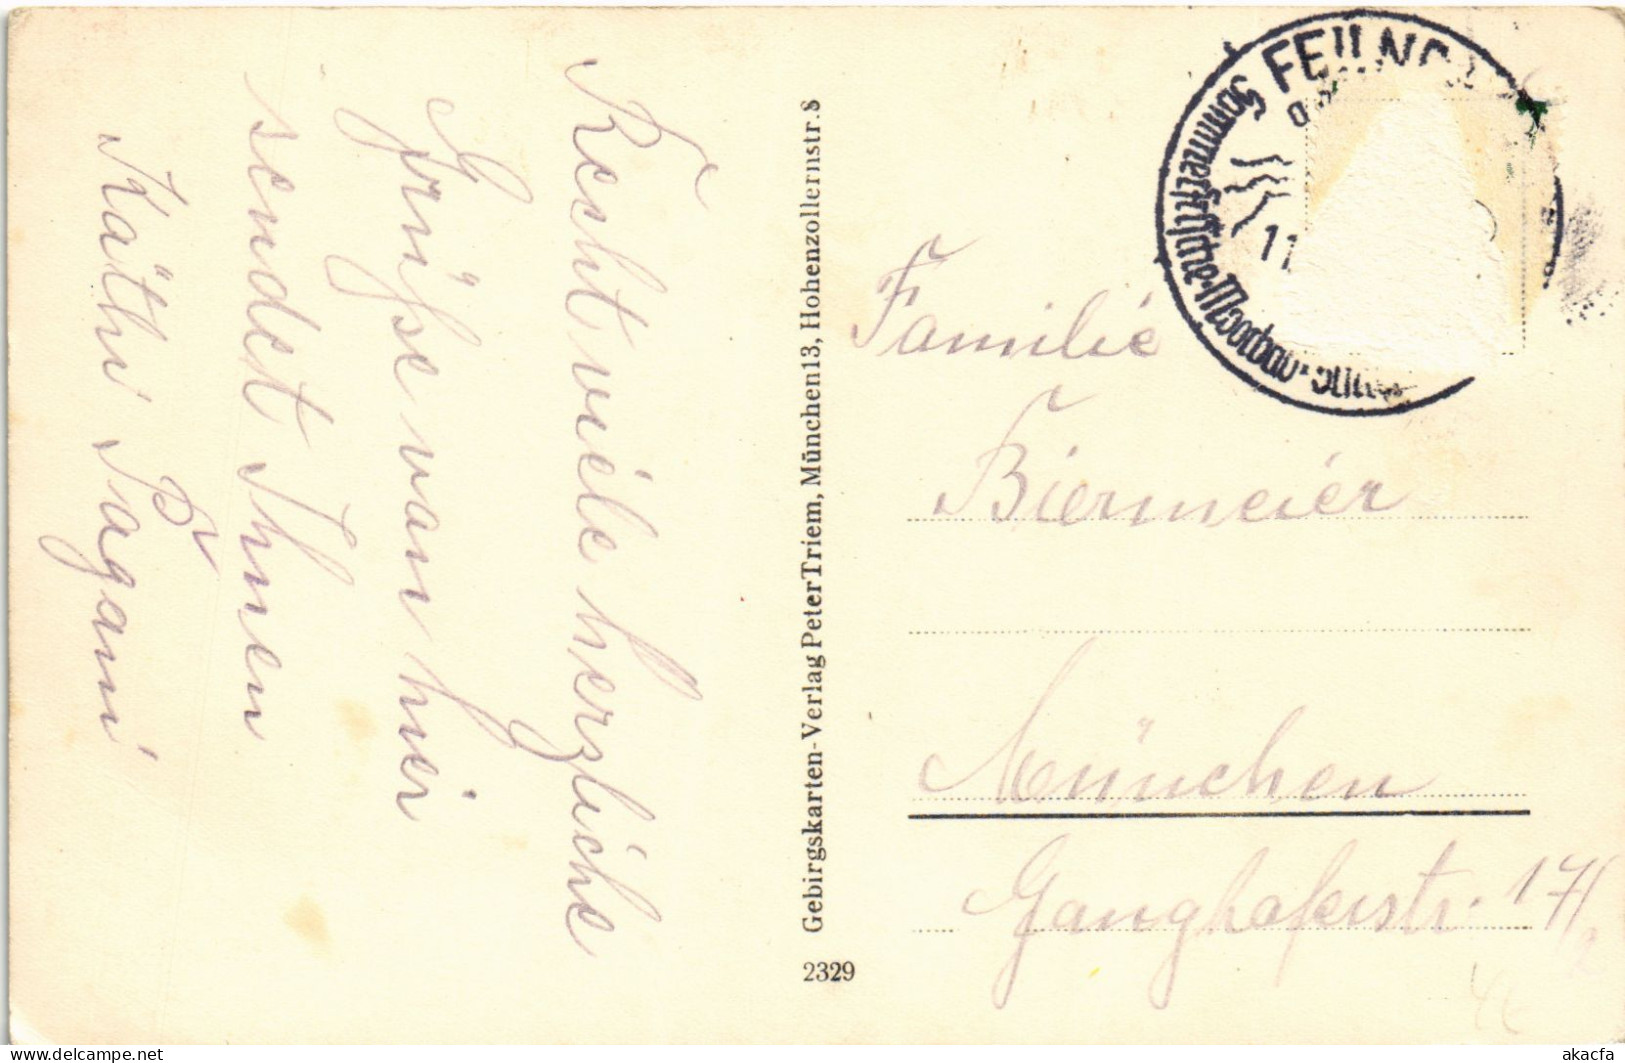 Recht viele herzliche
Grüße von hier
sendet Ihnen
Käthi Pagani
Gebirgskarten-Verlag Peter Triem, München 13, Hohenzollernstr. 8
2329
FEILN
Sommerfrische · Moorbad
11
Familie
Biermeier
München
Ganghoferstr. 17/
2
akacfa
delcampe.net